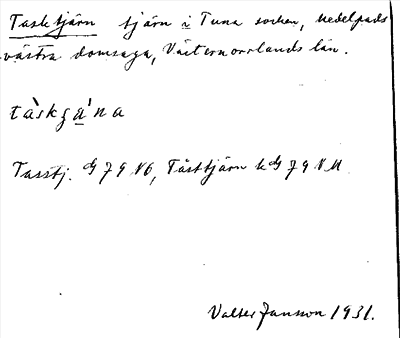 Tasktjärn tjärn i Tuna socken, Medelpads
västra domsaga, Västernorrlands län.
Tasstj. G 79 NÖ, Tåsttjärn k G 79 NM
Valter Jansson 1931.